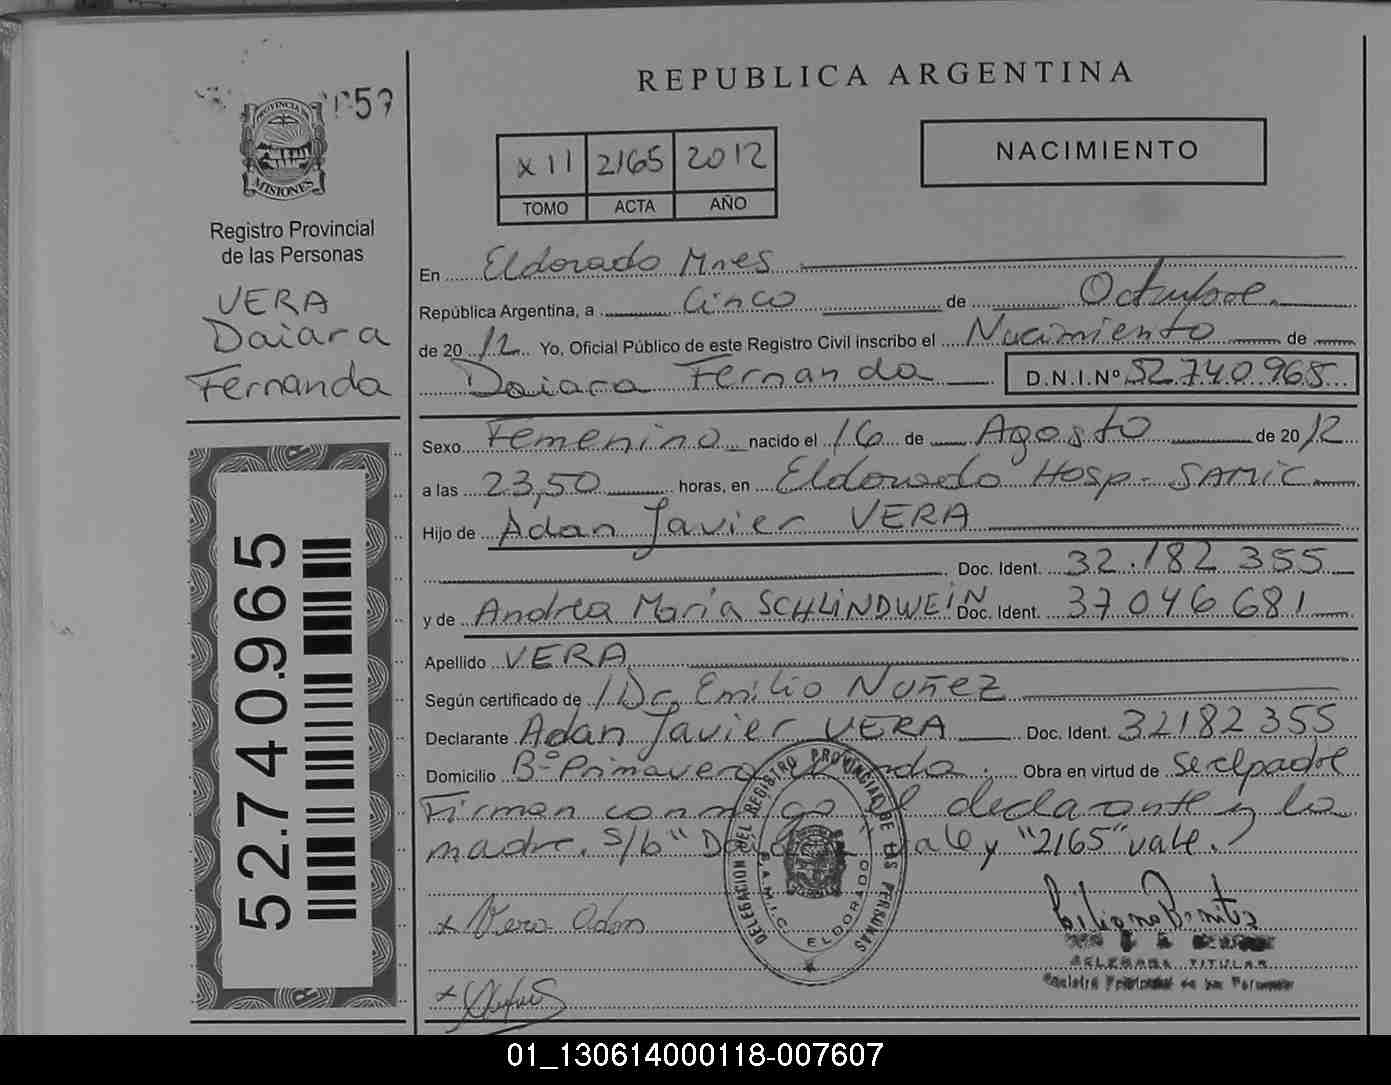 REPUBLICA ARGENTINA
59
PROVINCIA
MISIONES
Registro Provincial
de las Personas
VERA
Daiara
Fernanda
52.740.965
XII 2165 2012
TOMO ACTA AÑO
NACIMIENTO
En Eldorado Mnes
República Argentina, a Cinco de Octubre
de 2012 Yo, Oficial Público de este Registro Civil inscribo el Nacimiento de
Daiara Fernanda D.N.I.Nº 52.740.965
Sexo Femenino nacido el 16 de Agosto de 2012
a las 23,50 horas, en Eldorado Hosp- SAMIC
Hijo de Adan Javier VERA
Doc. Ident. 32.182 355
y de Andrea Maria SCHLINDWEIN Doc. Ident. 37046681
Apellido VERA
Según certificado de Dr. Emilio Nuñez
Declarante Adan Javier VERA Doc. Ident. 32182355
Domicilio Bº Primavera Obra en virtud de ser el padre
Firman conmigo el declarante y la
madre. s/b "Daiara" vale y "2165" vale.
DELEGACION DEL REGISTRO PROVINCIAL DE LAS PERSONAS
S.A.M.I.C. ELDORADO
x Vera Adan
Liliana Benitez
DELEGADA TITULAR
Registro Provincial de las Personas
01_130614000118-007607